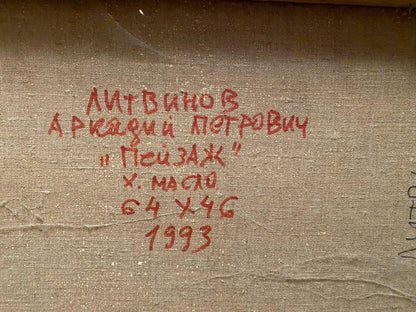 ЛИТВИНОВ
АРКАДИЙ ПЕТРОВИЧ
„ПЕЙЗАЖ"
Х. МАСЛО
64 Х 46
1993